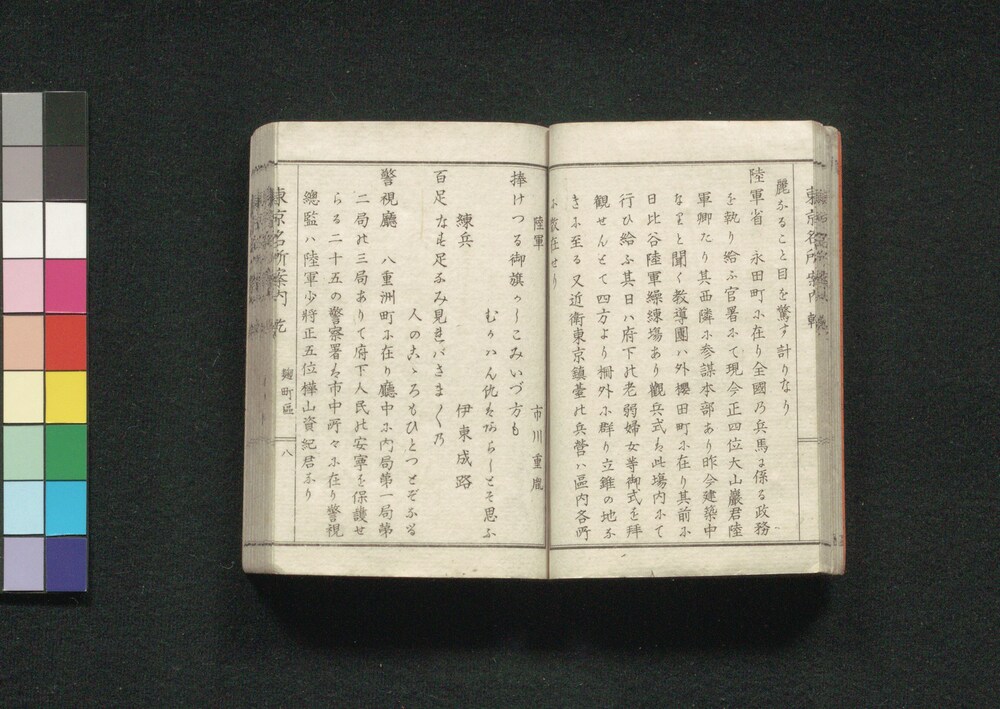 麗なること目を驚す計りなり
陸軍省　永田町に在り全國乃兵馬に係る政務
を執り給ふ官署にて現今正四位大山巖君陸
軍卿たり其西隣に参謀本部あり昨今建築中
なりと聞く教導團ハ外櫻田町に在り其前に
日比谷陸軍繰練場あり觀兵式は此場内にて
行ひ給ふ其日ハ府下の老弱婦女等御式を拜
觀せんとて四方より柵外に群り立錐の地な
きに至る又近衛東京鎮臺の兵營ハ區内各所
に散在せり
陸軍　市川重胤
捧けつる御旗かしこみいづ方も
むかハん仇はあらしとそ思ふ
練兵　伊東成路
百足なす足なみ見れバさまく乃
人のこゝろもひとつとぞなる
警視廳　八重洲町に在り廳中に内局第一局第
二局の三局ありて府下人民の安寧を保護せ
らる二十五の警察署は市中所々に在り警視
總監ハ陸軍少將正五位樺山資紀君なり
東京名所案内　乾
麹町區　八